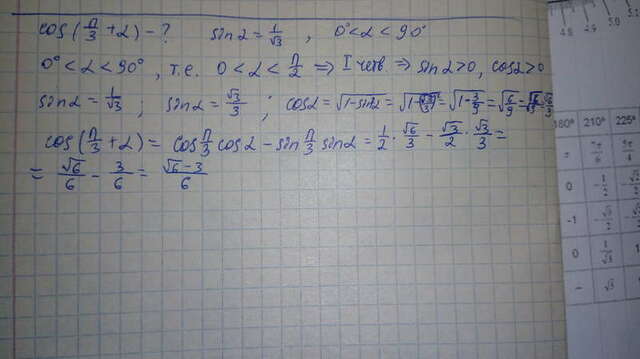 cos(π/3 + α) - ? sinα = 1/√3 , 0°<α<90°
0°<α<90°, т.е. 0<α<π/2 ⇒ I четв. ⇒ sinα>0, cosα>0
sinα = 1/√3 ; sinα = √3/3 ; cosα = √(1-sin²α) = √(1-(√3/3)²) = √(1-3/9) = √(6/9) = √6/3
cos(π/3 + α) = cos π/3 cosα - sin π/3 sinα = 1/2 · √6/3 - √3/2 · √3/3 =
= √6/6 - 3/6 = (√6-3)/6
4.8 4.9 5.0 5.1
180° 210° 225°
π 7π/6 5π/4
0 -1/2 -√2/2
-1 -√3/2
0 1/√3 1
- √3 1